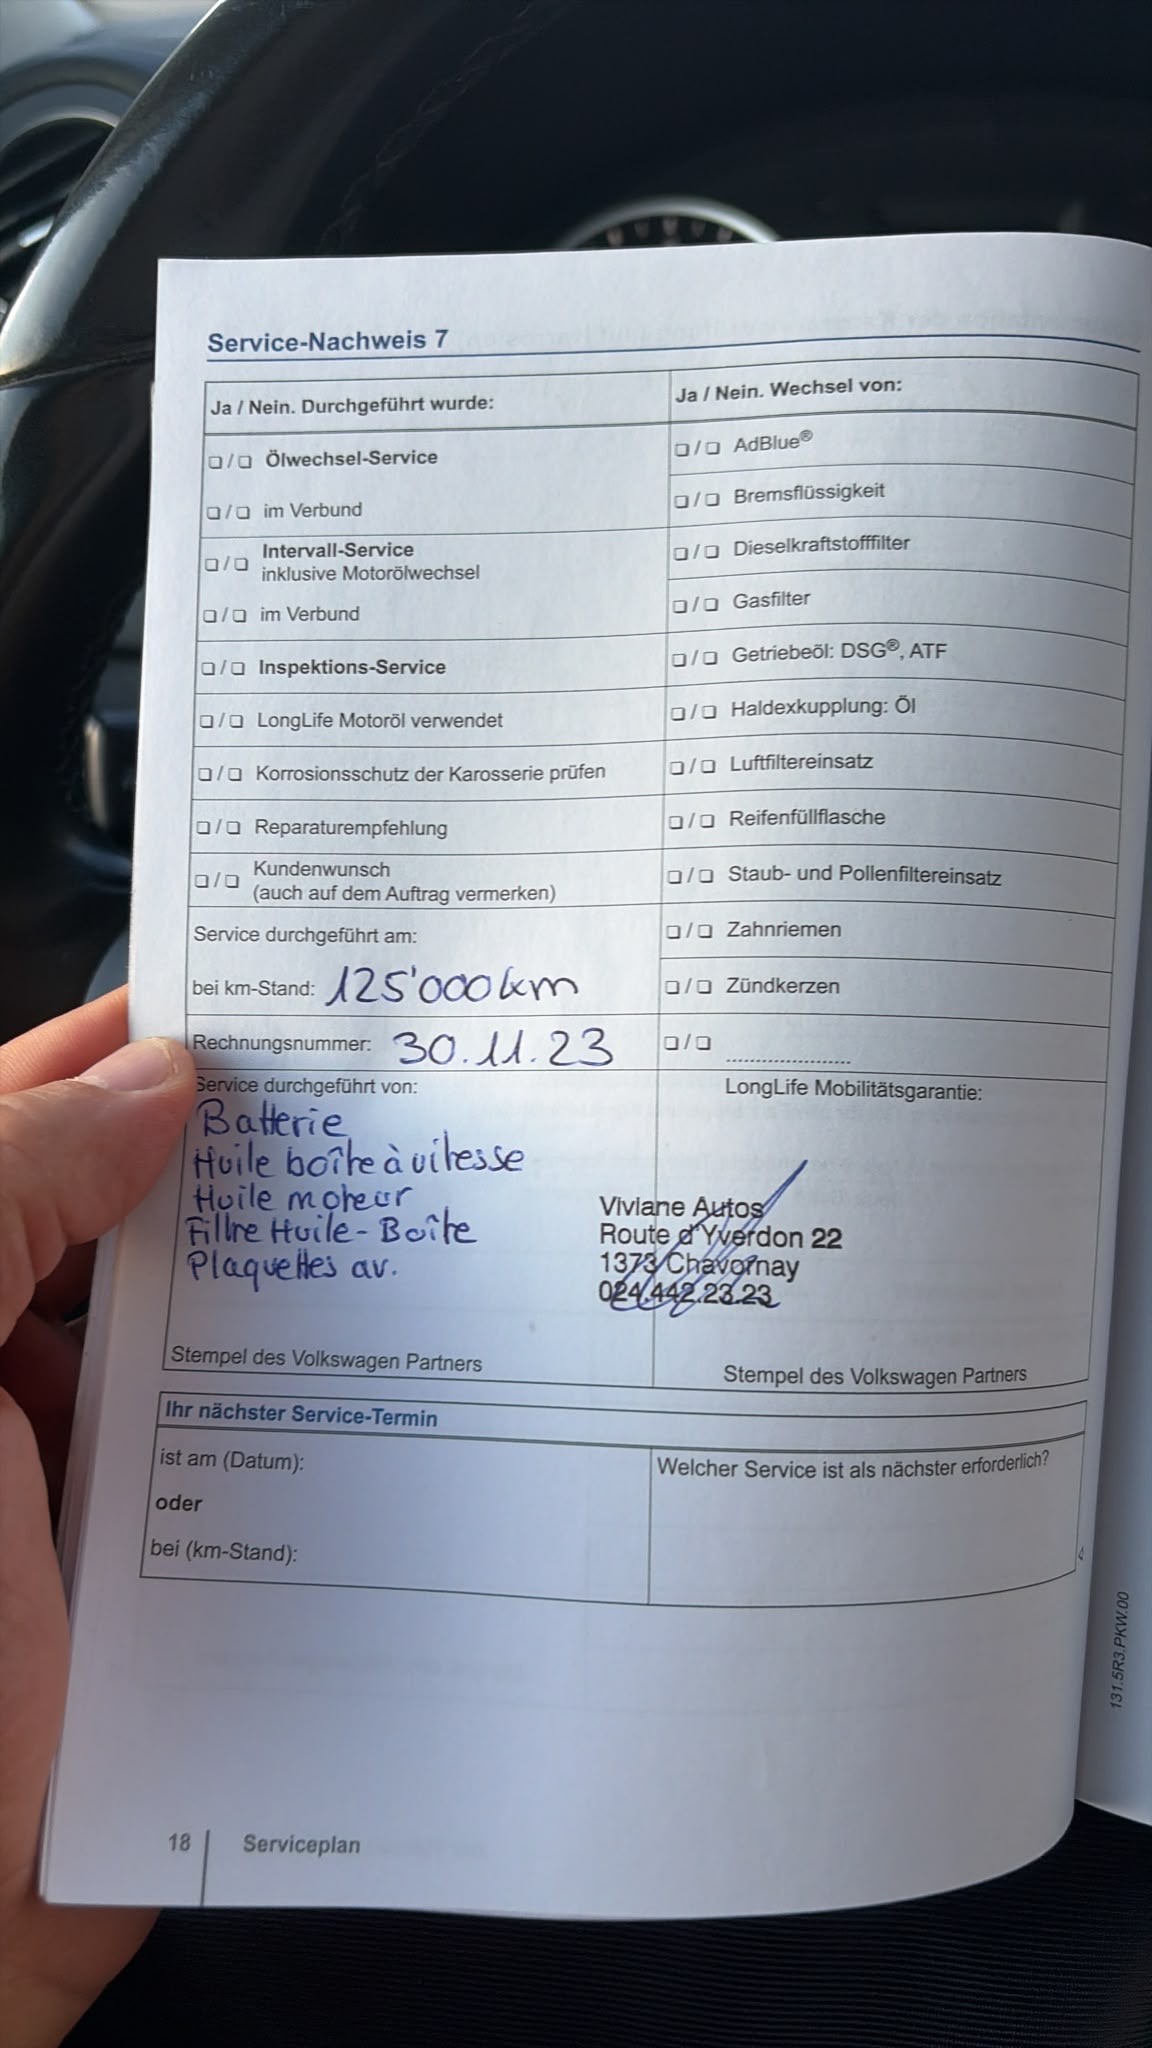 Service-Nachweis 7
Ja / Nein. Durchgeführt wurde:
❏ / ❏ Ölwechsel-Service
❏ / ❏ im Verbund
❏ / ❏ Intervall-Service
inklusive Motorölwechsel
❏ / ❏ im Verbund
❏ / ❏ Inspektions-Service
❏ / ❏ LongLife Motoröl verwendet
❏ / ❏ Korrosionsschutz der Karosserie prüfen
❏ / ❏ Reparaturempfehlung
❏ / ❏ Kundenwunsch
(auch auf dem Auftrag vermerken)
Service durchgeführt am:
bei km-Stand: 125'000 km
Rechnungsnummer: 30.11.23
Ja / Nein. Wechsel von:
❏ / ❏ AdBlue®
❏ / ❏ Bremsflüssigkeit
❏ / ❏ Dieselkraftstofffilter
❏ / ❏ Gasfilter
❏ / ❏ Getriebeöl: DSG®, ATF
❏ / ❏ Haldexkupplung: Öl
❏ / ❏ Luftfiltereinsatz
❏ / ❏ Reifenfüllflasche
❏ / ❏ Staub- und Pollenfiltereinsatz
❏ / ❏ Zahnriemen
❏ / ❏ Zündkerzen
❏ / ❏ .....................
Service durchgeführt von:
Batterie
Huile boîte à vitesse
Huile moteur
Filtre Huile - Boîte
Plaquettes av.
Stempel des Volkswagen Partners
LongLife Mobilitätsgarantie:
Viviane Autos
Route d'Yverdon 22
1373 Chavornay
024.442.23.23
Stempel des Volkswagen Partners
Ihr nächster Service-Termin
ist am (Datum):
oder
bei (km-Stand):
Welcher Service ist als nächster erforderlich?
131.5R3.PKW.00
18 Serviceplan